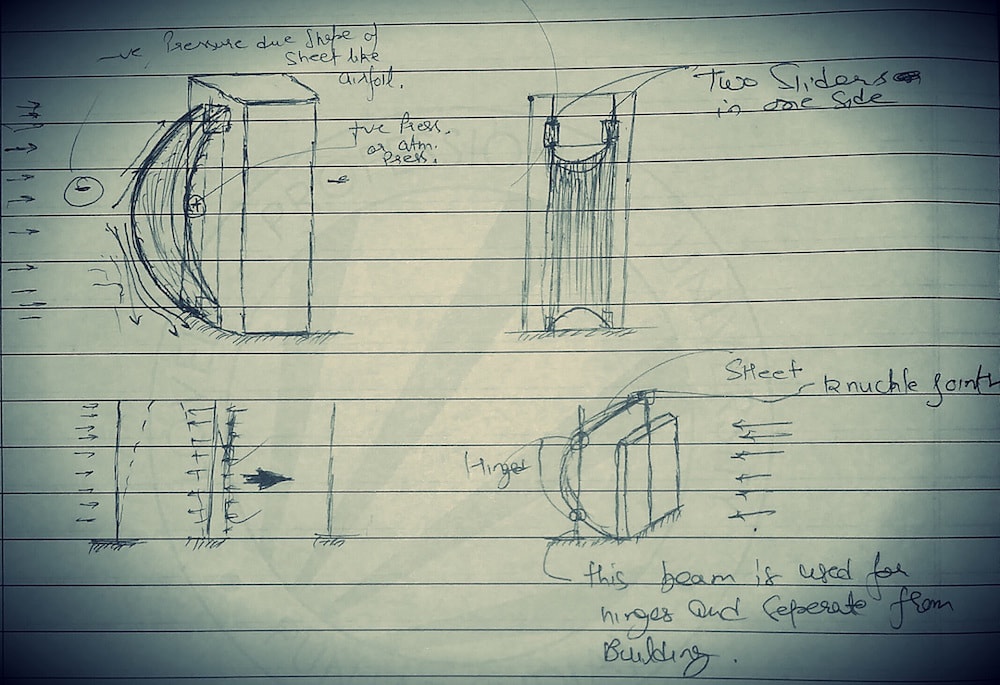 -ve Pressure due Shape of
Sheet like
airfoil.
+ve Press.
or atm.
Press.
-
+
Two Sliders
in one side
Sheet
knuckle joint
Hinges
this beam is used for
hinges and Seperate from
Building.